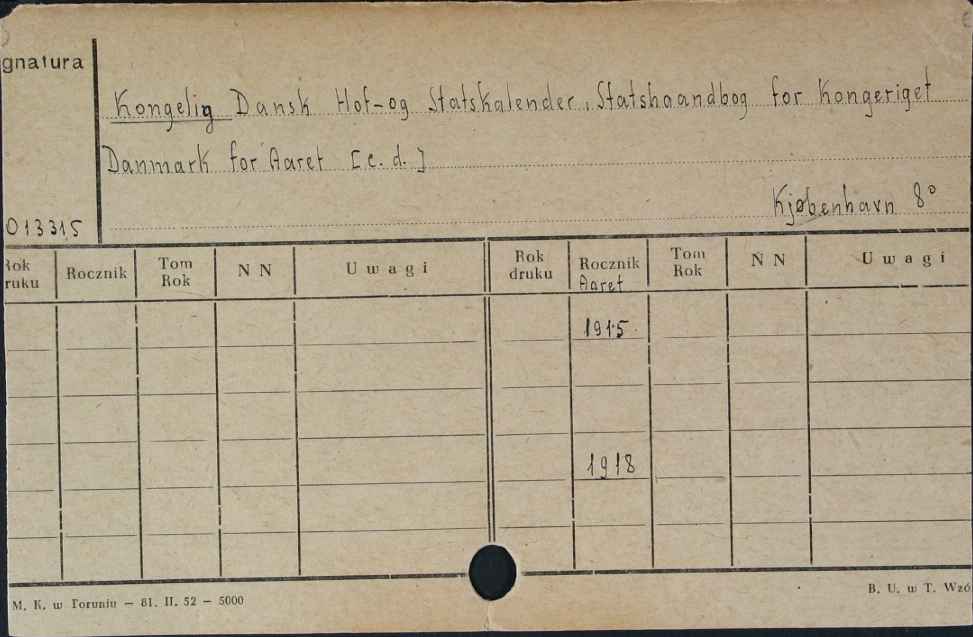 gnatura
Kongelig Dansk Hof-og Statskalender. Statshaandbog for Kongeriget
Danmark for Aaret [c. d.]
Kjøbenhavn 8°
013315
Rok druku Rocznik Tom Rok N N Uwagi Rok druku Rocznik Tom Rok N N Uwagi
Aaret
1915
1918
M. K. w Toruniu — 81. II. 52 — 5000
B. U. w T. Wzó